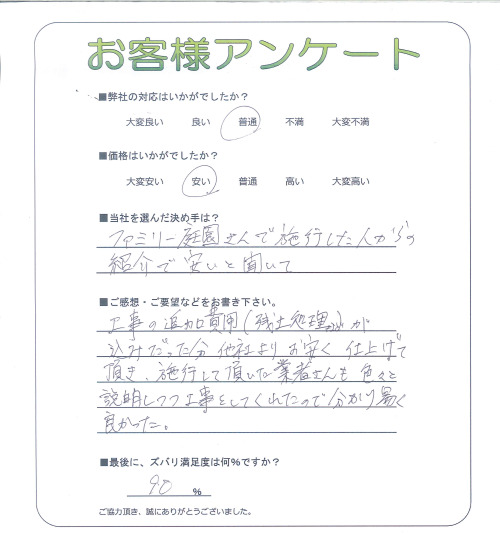 お客様アンケート
■弊社の対応はいかがでしたか？
大変良い 良い 普通 不満 大変不満
■価格はいかがでしたか？
大変安い 安い 普通 高い 大変高い
■当社を選んだ決め手は？
ファミリー庭園さんで施行した人からの
紹介で安いと聞いて
■ご感想・ご要望などをお書き下さい。
工事の追加費用(残土処理など)が
込みだった分 他社より お安く 仕上げて
頂き、施行して頂いた業者さんも 色々と
説明しつつ工事をしてくれたので分かり易く
良かった。
■最後に、ズバリ満足度は何%ですか？
90 %
ご協力頂き、誠にありがとうございました。